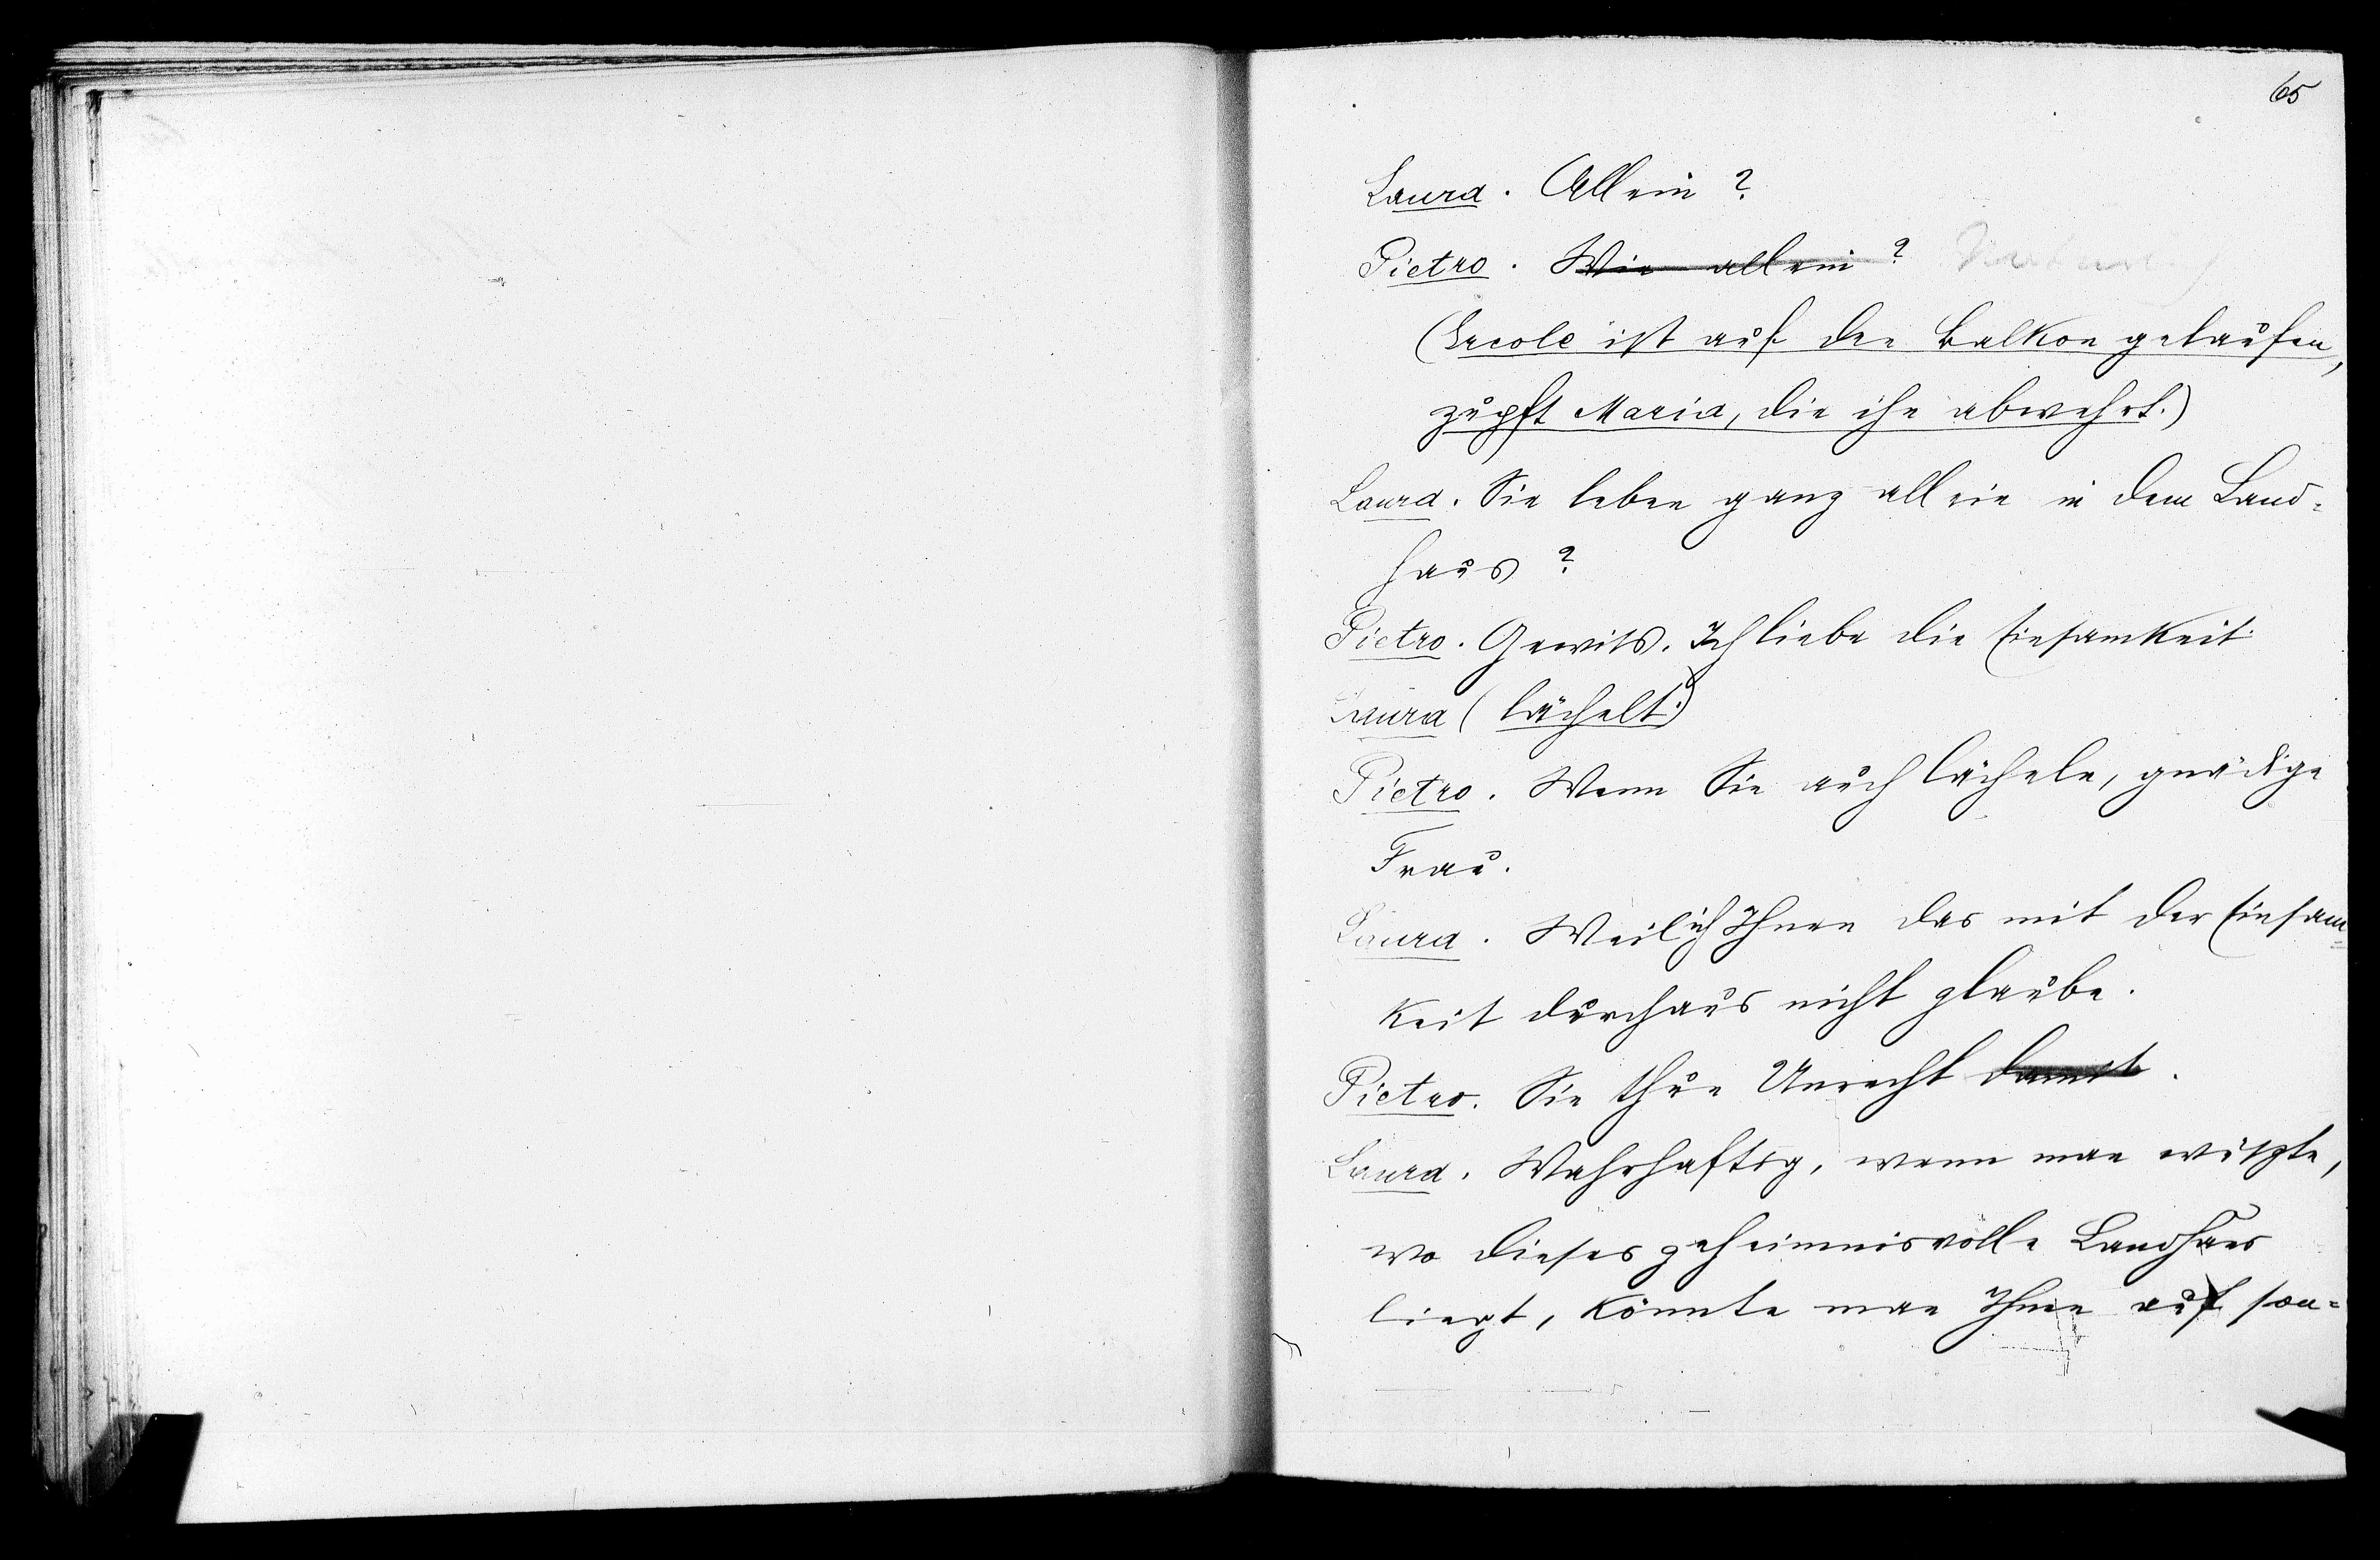 65
Laura. Allein?
Pietro. Wie allein?
(Ercole ist auf den Balkon gelaufen,
zupft Maria, die ihn abwehrt.)
Laura. Sie leben ganz allein in dem Land-
haus?
Pietro. Gewiss. Ich liebe die Einsamkeit.
Laura (lächelt.)
Pietro. Wenn Sie auch lächeln, gnädige
Frau.
Laura. Weil ich Ihnen das mit der Einsam-
keit durchaus nicht glaube.
Pietro. Sie thun Unrecht damit.
Laura. Wahrhaftig, wenn man wüszte,
wo dieses geheimnisvolle Landhaus
liegt, könnte man Ihnen auf son-